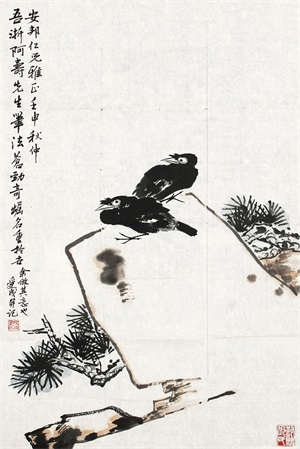 安邦仁兄雅正壬申秋仲
吾浙阿壽先生筆法蒼勁奇崛名重於世
余倣其意也